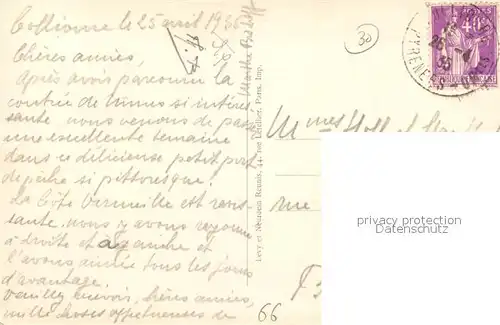 Collioure le 25 avril 1936
Chères amies,
Après avoir parcouru la
contrée de Nîmes si intéres-
sante nous venons de passer
une excellente semaine
dans ce délicieux petit port
de pêche si pittoresque!
La Côte Vermeille est ravis-
sante, nous y avons rayonné
à droite et à gauche et
l'avons aimée tous les jours
d'avantage.
Veuillez recevoir, chères amies,
mille choses affectueuses de
Levy et Neurdein Réunis, 44, rue Letellier, Paris. Imp.
30
40c
PYRENEES
Mmes
rue
privacy protection
Datenschutz
66